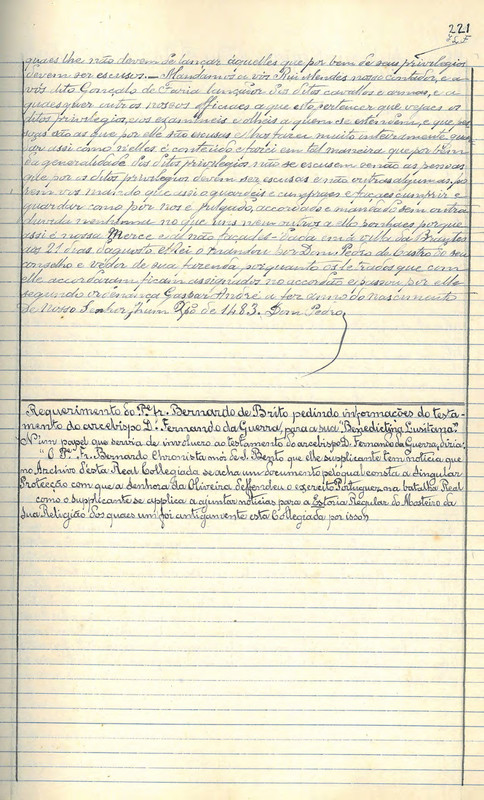 221
quaes lhe não devem de lançar áquelles que por bem de seus privilegios
devem ser escusos. — Mandamos a vós Rui Mendes nosso contador, e a
vós dito Gonçalo de Faria lançador dos ditos cavallos e armas, e a
quaesquer outros nossos officiaes a que esto pertencer que vejaes os
ditos privilegios, e os examineis e olhais a quem se estendem, e que pes
soas são as que por elle são escusas e lhos façaes muito inteiramente guar
dar assi como n'elles é conteudo e fazei em tal maneira que por bem
da generalidade dos ditos privilegios não se escusem senão as pessoas
que por os ditos privilegios devem ser escusas e não outras algumas, po
rem vos mando que assi o guardeis e cumpraes e façaes cumprir e
guardar como por nós é julgado, accordado e mandado sem outra
duvida nenhuma no que uns nem outros a ello ponhaes porque
assi é nossa Merce e al não façades. Dada em a villa de Abrantes
aos 21 dias d'agosto. El Rei o mandou por Dom Pedro de Castro do seu
conselho e védor de sua fazenda, porquanto os letrados que com
elle accordaram ficam assignados no accordão e passou por elle
segundo ordenança Gaspar André a fez anno do nascimento
de Nosso Senhor Jhum Xpõ de 1483. Dom Pedro
Requerimento do P.e fr. Bernardo de Brito pedindo informações do testa-
mento do arcebispo D. Fernando da Guerra, para a sua "Benedictina Lusitana."
N'um papel que servia de involucro ao testamento do arcebispo D. Fernando da Guerra, dizia:
"O P.e Fr. Bernardo Chronista mór de S. Bento que elle supplicante tem noticia que
no Archivo d'esta Real Collegiada se acha um documento pelo qual consta a singular
Protecção com que a Senhora da Oliveira deffendeu o exercito Portuguez na batalha Real
como o supplicante se applica a ajuntar noticias para a Estoria Regular do Mosteiro da
Sua Religião dos quaes um foi antigamente esta Collegiada por isso"